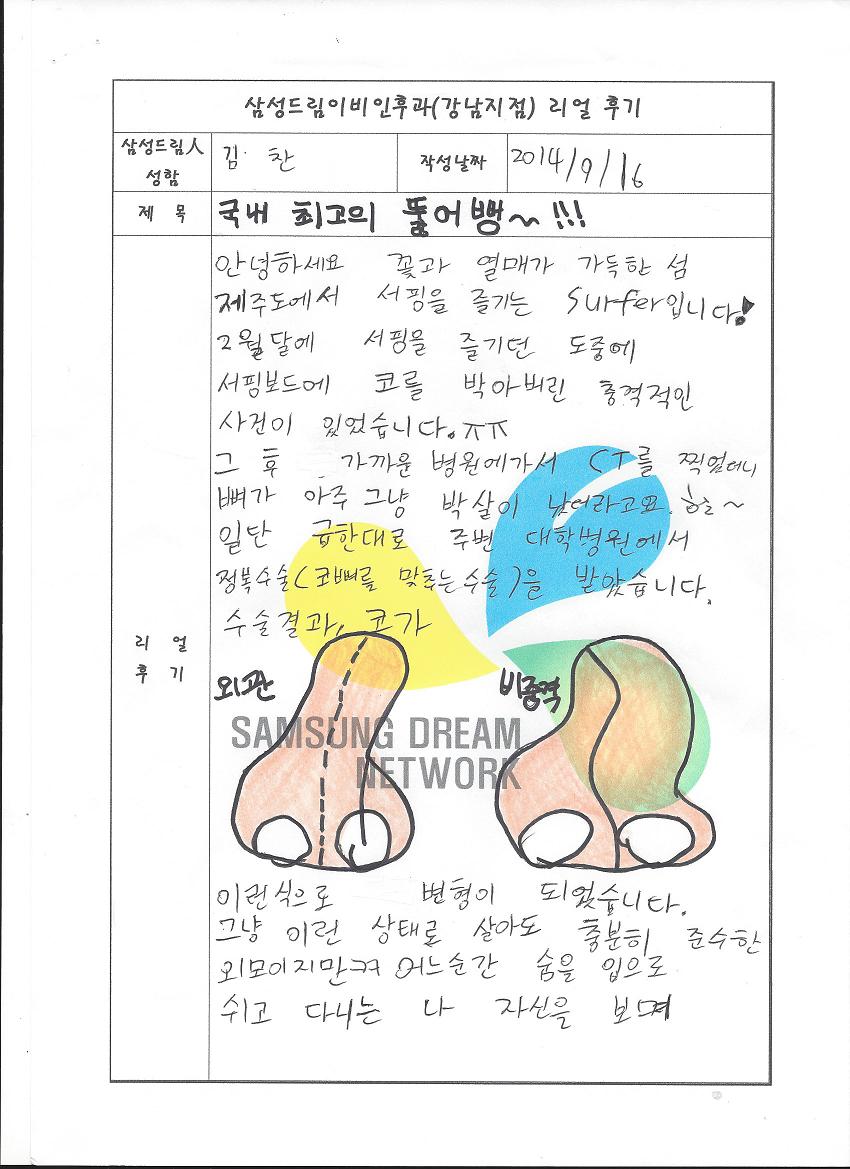 삼성드림이비인후과(강남지점) 리얼 후기
삼성드림人 성함
김 찬
작성날짜
2014/9/16
제 목
국내 최고의 뚫어뻥~!!!
리 얼
후 기
안녕하세요 꽃과 열매가 가득한 섬
제주도에서 서핑을 즐기는 Surfer입니다!
2월달에 서핑을 즐기던 도중에
서핑보드에 코를 박아버린 충격적인
사건이 있었습니다.ㅠㅠ
그 후 가까운 병원에가서 CT를 찍었더니
뼈가 아주 그냥 박살이 났더라고요. 헐~
일단 급한대로 주변 대학병원에서
정복수술(코뼈를 맞추는 수술)을 받았습니다.
수술결과, 코가
외관
비중격
SAMSUNG DREAM
NETWORK
이런식으로 변형이 되었습니다.
그냥 이런 상태로 살아도 충분히 준수한
외모이지만ㅋㅋ 어느순간 숨을 입으로
쉬고 다니는 나 자신을 보며